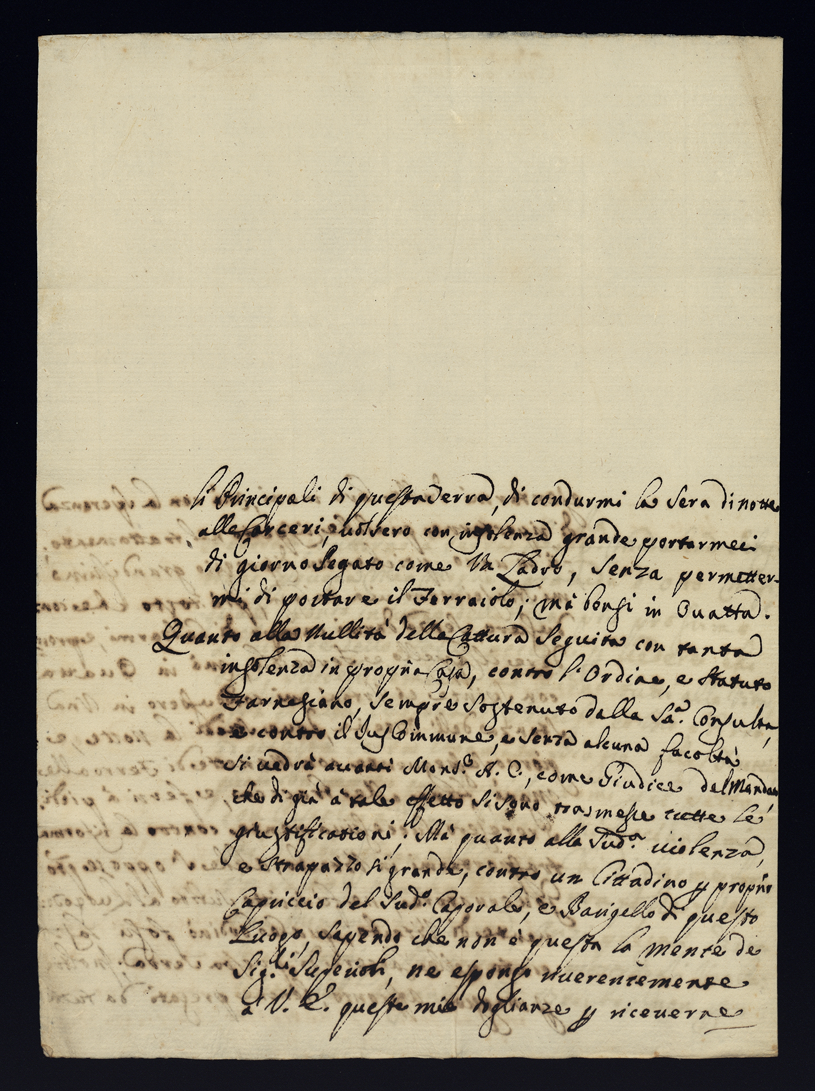 li Principali di questa Terra, di condurmi la sera di notte
alle Carceri, uolsero con insolenza grande portarmeci
di giorno legato come Un Ladro, senza permetter-
mi di portare il Ferraiolo; mà bensi in Ouatta.
Quanto alla Nullità della Cattura seguita con tanta
insolenza in propria Casa, contro l'Ordine, e Statuto
Farnesiano, sempre sostenuto dalla Sa. Consulta,
e contro il Jus Commune, e senza alcuna facoltà
si uedrà auanti Mons.r A. C., come Giudice del Mandato
che di già à tale effetto si sono trasmesse tutte le
giustificationi; Mà quanto alla Sud.a uiolenza,
e strapazzo si grande, contro un Cittadino p proprio
Capriccio del Sud.o Caporale, e Barigello di questo
Luogo, sapendo che non è questa la mente de
Sig.ri Superiori, ne espongo riuerentemente
à V. E. queste mie doglianze p riceuerne